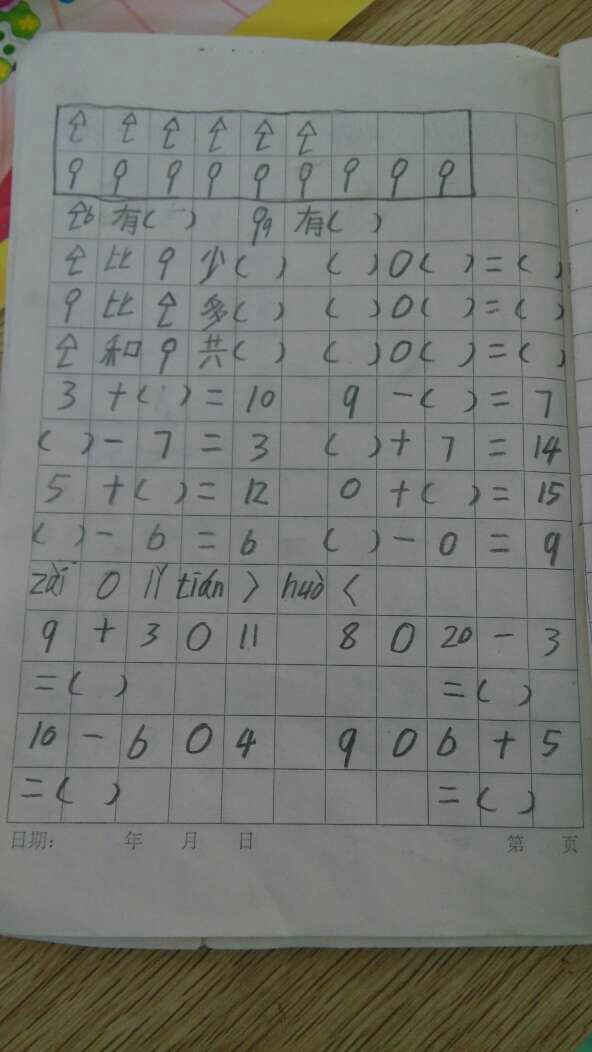 有( ) 有( )
比 少( ) ( )○( )=( )
比 多( ) ( )○( )=( )
和 共( ) ( )○( )=( )
3 +( )= 10 9 -( )= 7
( )- 7 = 3 ( )+ 7 = 14
5 +( )= 12 0 +( )= 15
( )- 6 = 6 ( )- 0 = 9
zài ○ lǐ tián > huò <
9 + 3 ○ 11 8 ○ 20 - 3
=( ) =( )
10 - 6 ○ 4 9 ○ 6 + 5
=( ) =( )
日期: 年 月 日 第 页